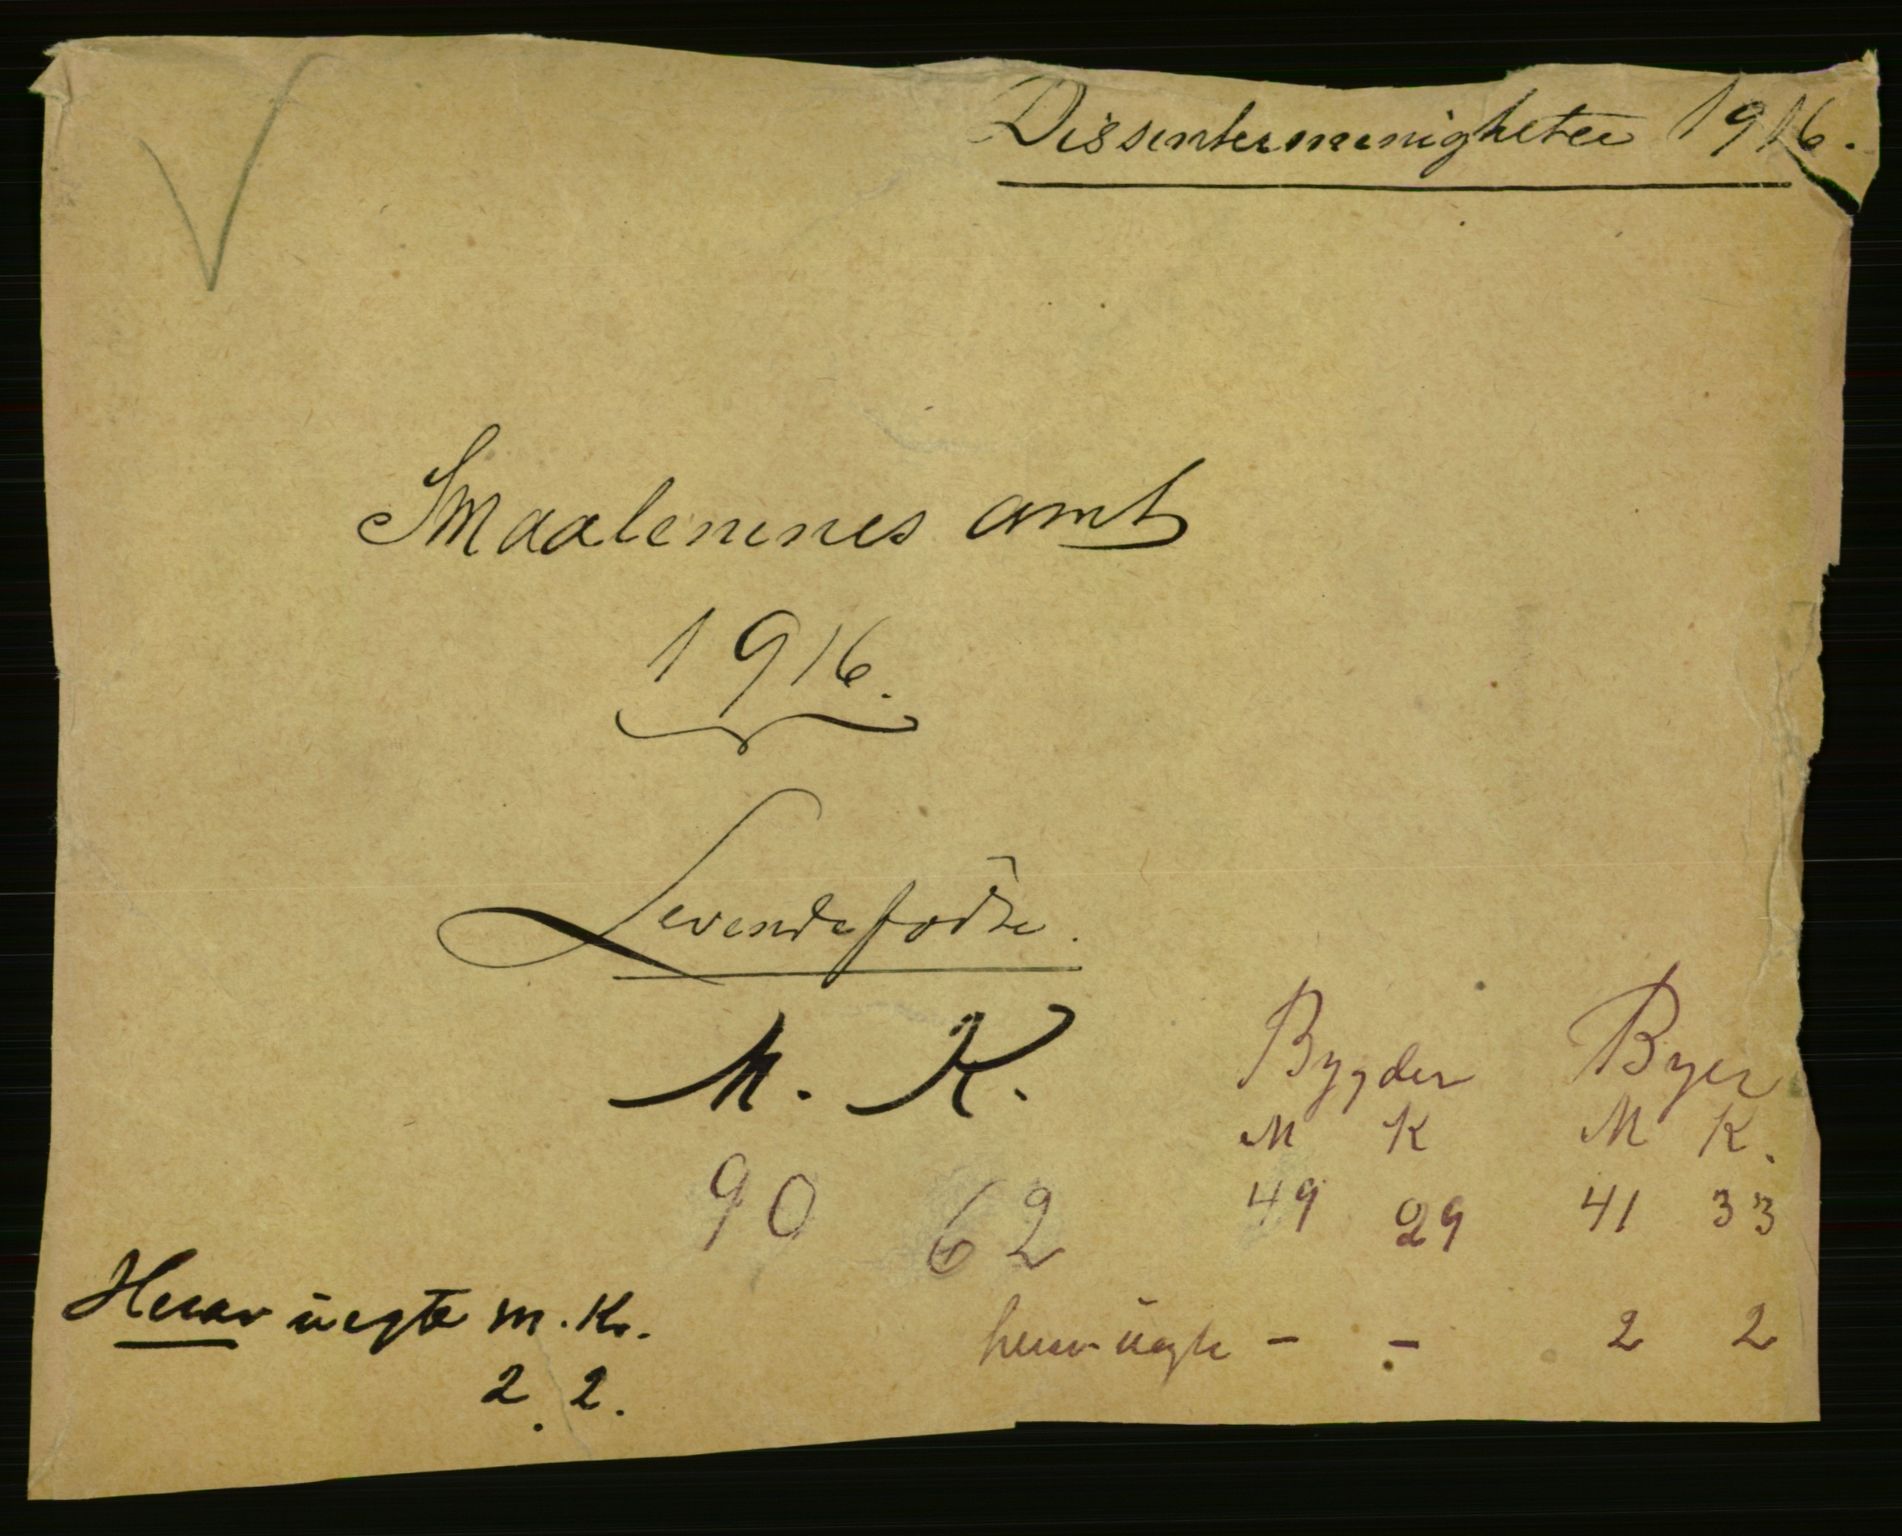 Dissentermenigheter 1916.
Smaalenenes amt
1916.
Levendefødte.
M. K.
90 62
Bygder Byer
M K M K.
49 29 41 33
Herav uegte m. K.
2. 2.
herav uegte - - 2 2